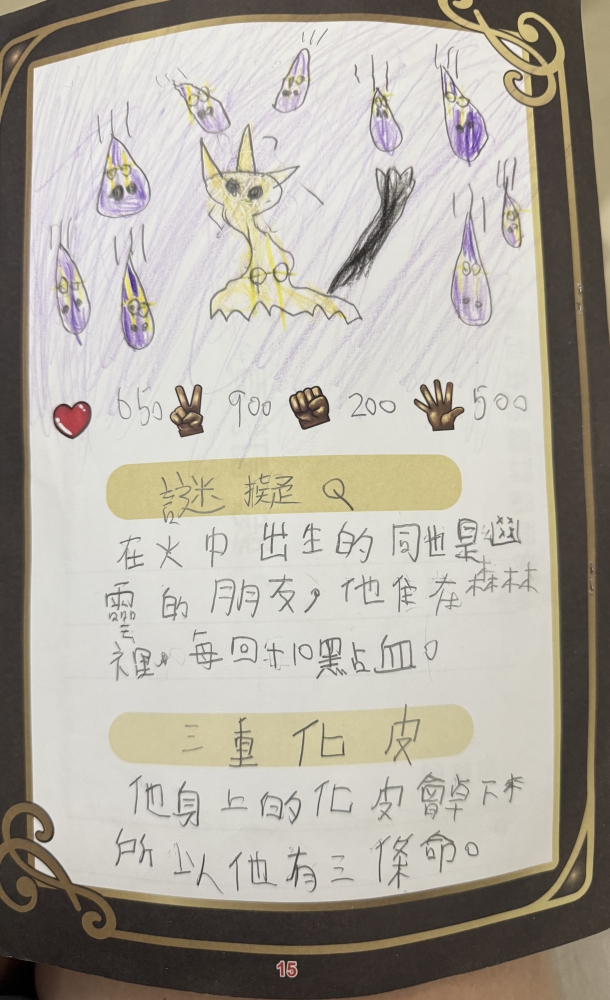 650 900 200 500
謎擬Q
在火中出生的同也是幽
靈的朋友，他住在森林
裡。每回+10點血。
三重化皮
他身上的化皮會掉下來
所以他有三條命。
15